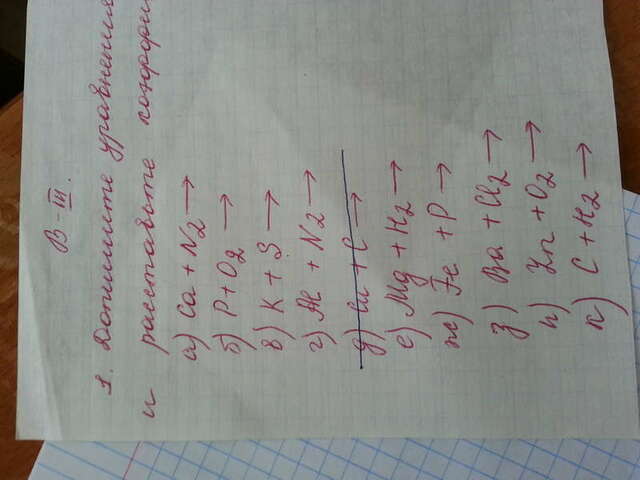 В-III.
1. Допишите уравнения
и расставьте коэффи
а) Ca + N2 →
б) P + O2 →
в) K + S →
г) Al + N2 →
е) Mg + H2 →
ж) Fe + P →
з) Ba + Cl2 →
и) Zn + O2 →
к) C + H2 →